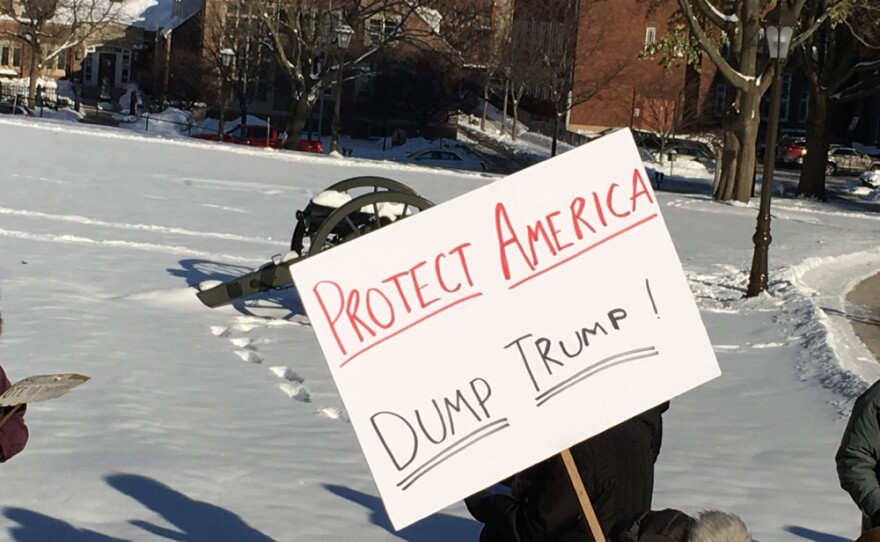 PROTECT AMERICA
DUMP TRUMP!